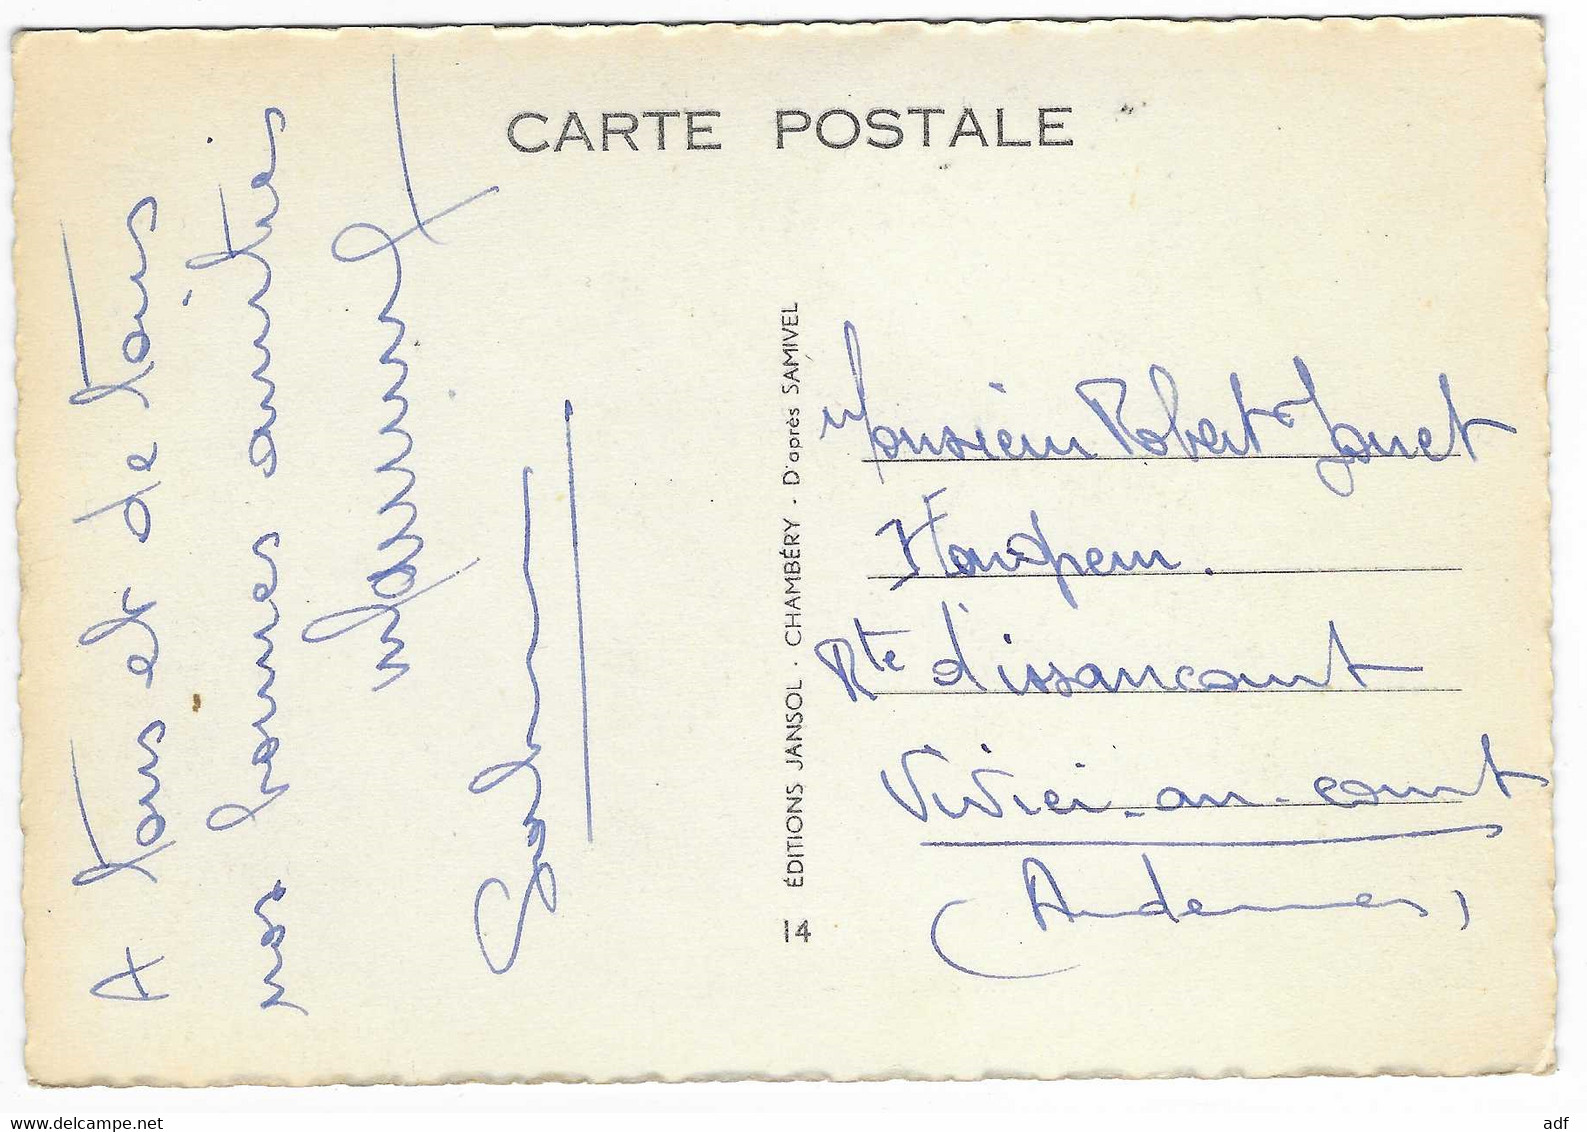 CARTE POSTALE
A tous et de tous
nos bonnes amitiés
14 ÉDITIONS JANSOL . CHAMBÉRY . D'après SAMIVEL
Monsieur Robert Jouet
Rte d'issancourt
Vivier-au-court
(Ardennes)
www.delcampe.net
adf